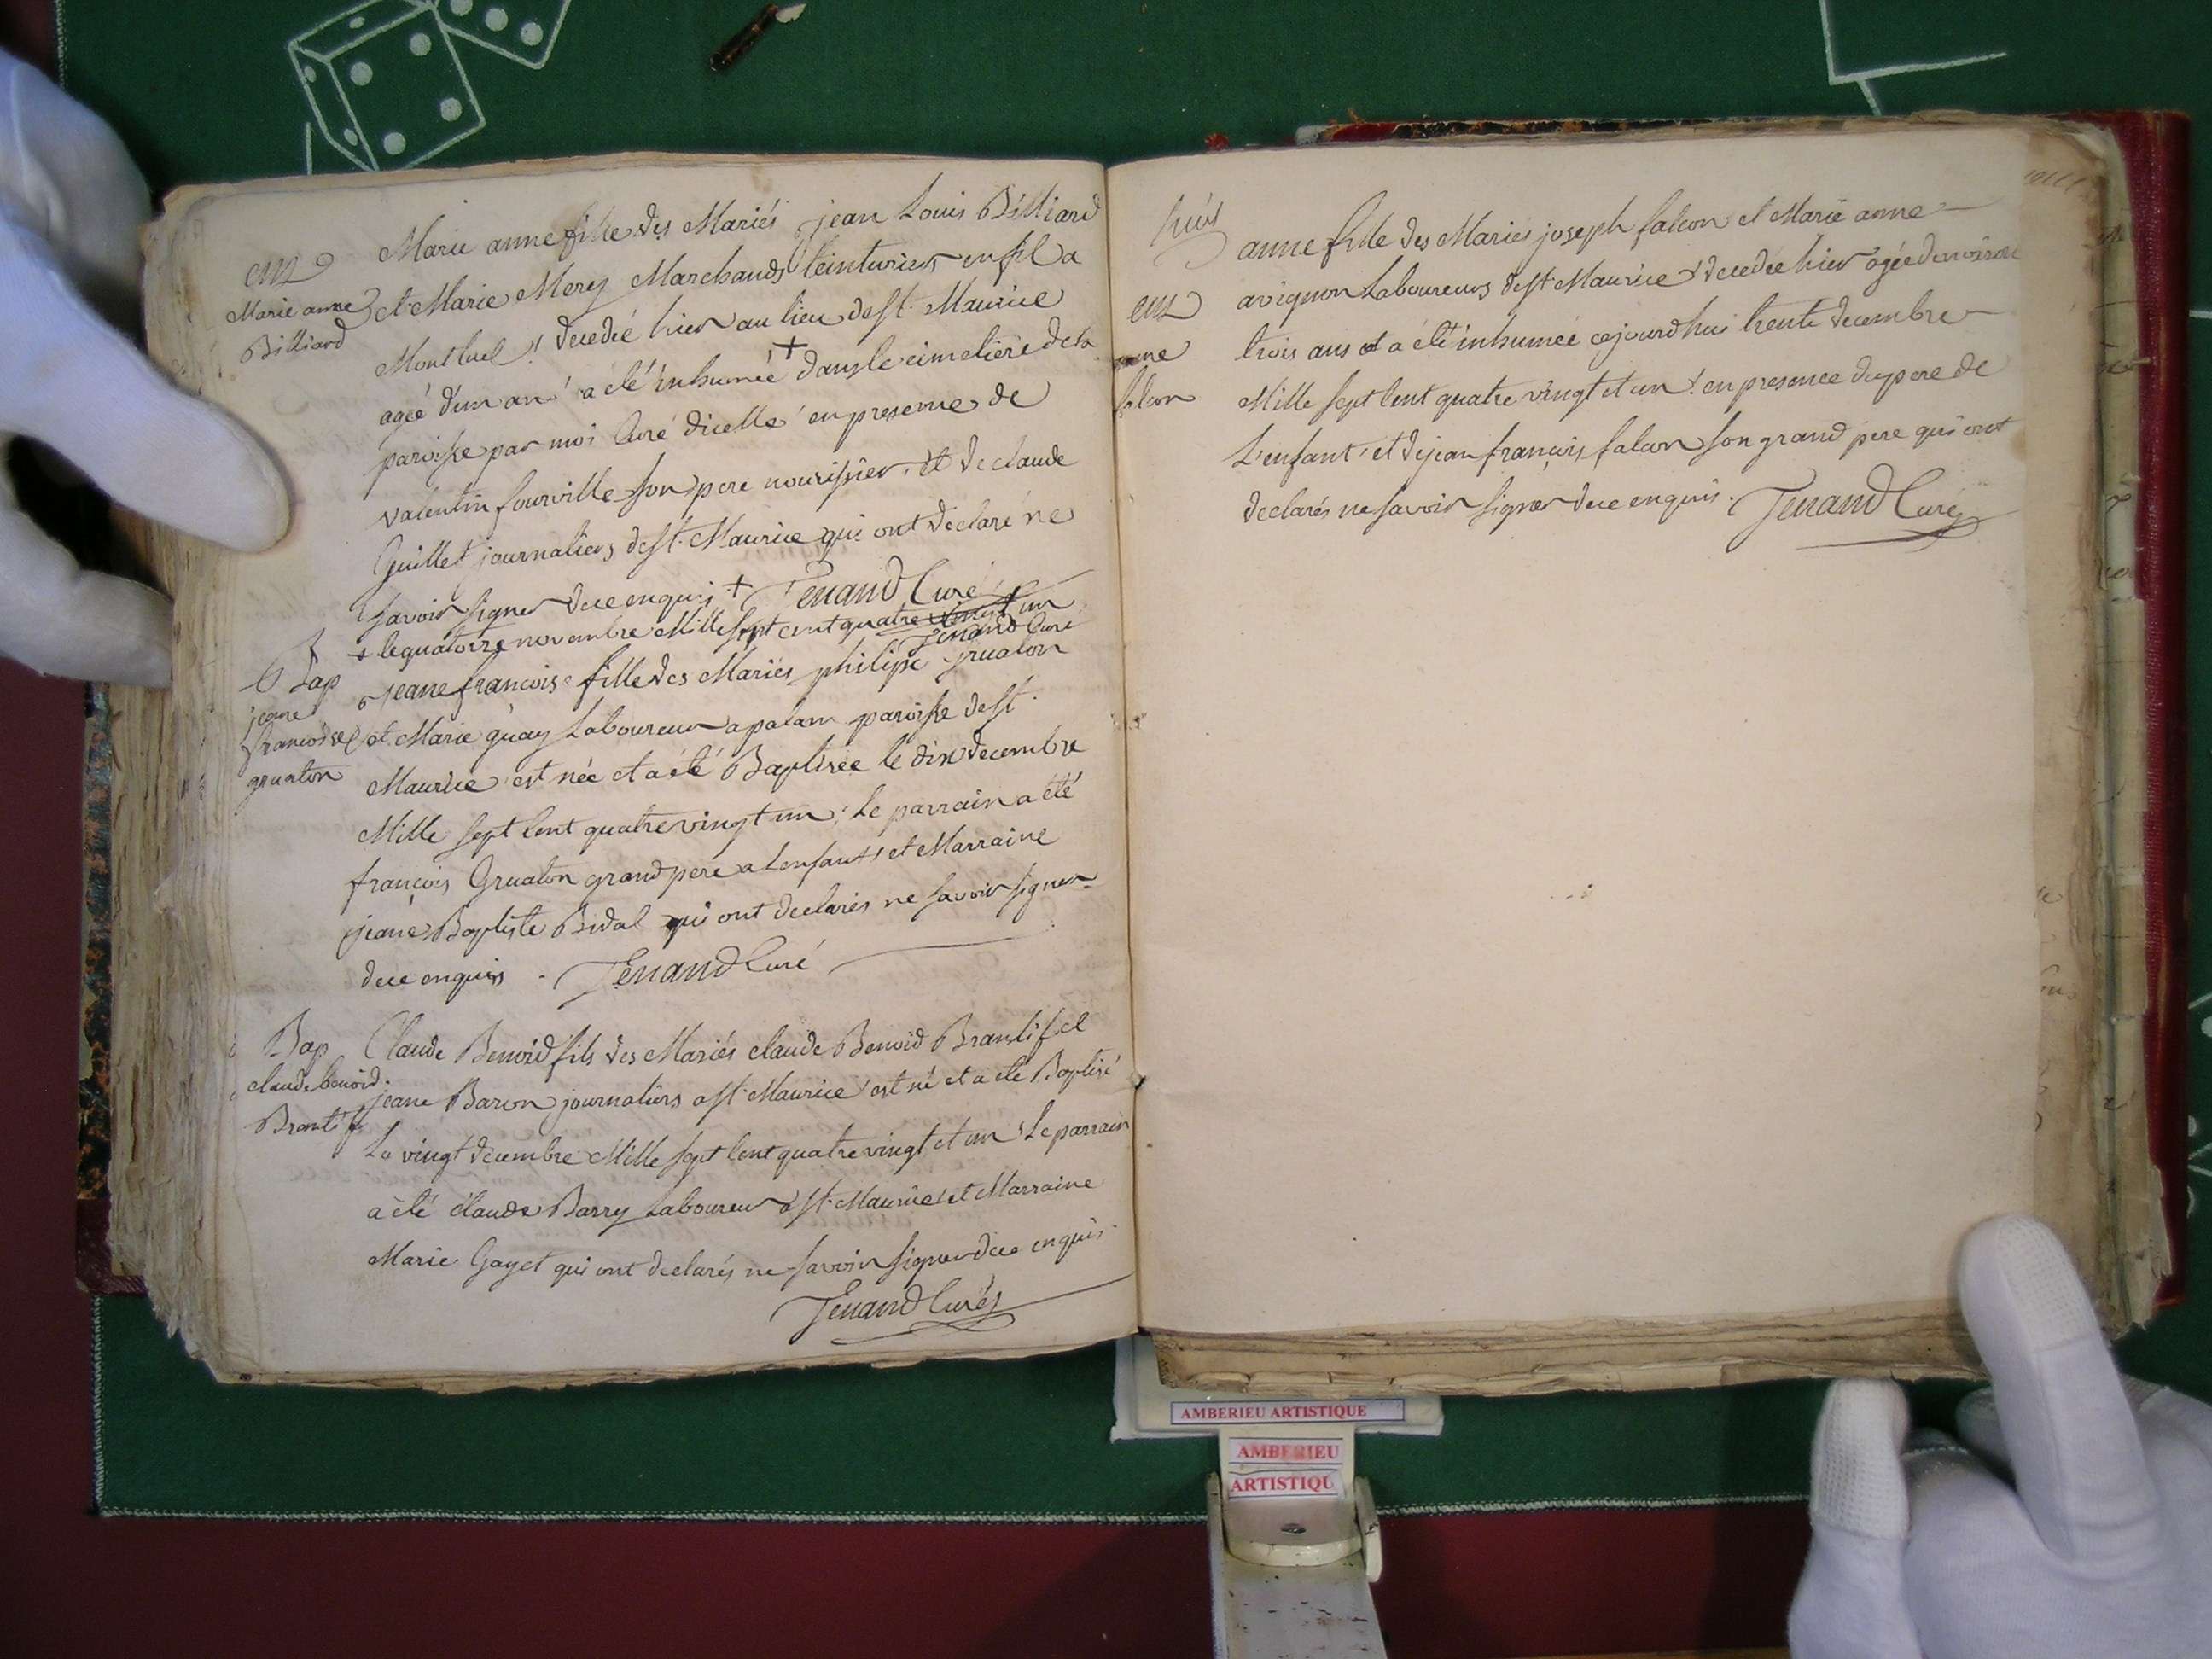 em
Marie anne
Billiard
Marie anne fille des Mariés jean Louis Billiard
et Marie Mery Marchands teinturiers en fil a
Montluel, decedée hier au lieu de st. Maurice
agée d'un an a été inhumée + dans le cimetiere de la
paroisse par moi Curé dicelle en presence de
valentin fourville son pere nourissier, et de claude
Guillet journaliers de st. Maurice qui ont declaré ne
savoir signer de ce enquis + Tenand Curé
+ le quatorze novembre Mille sept cent quatre vingt un
Tenand Curé
Bap
jeane
francoise
gruaton
jeane francoise fille des Mariés philipe gruaton
et Marie quay Laboureur a palan paroisse de st.
Maurice est née et a été Baptisée le dix decembre
Mille sept Cent quatre vingt un; Le parrain a été
françois Gruaton grand pere a Lenfant et Marraine
jeane Baptiste Bidal qui ont declarés ne savoir signer
de ce enquis . Tenand Curé
Bap
claude benoid
Brantif
Claude Benoid fils des Mariés claude Benoid Brantif et
jeane Baron journaliers a st. Maurice est né et a été Baptisé
Le vingt decembre Mille sept Cent quatre vingt et un Le parrain
a été claude Barry Laboureur a st. Maurice et Marraine
Marie Gayet qui ont declarés ne savoir signer de ce enquis
Tenand Curé
em
anne
falcon
anne fille des Mariés joseph falcon et Marie anne
avignon Laboureurs de st Maurice decedée hier agée denviron
trois ans et a été inhumée cejourdhui trente decembre
Mille sept Cent quatre vingt et un en presence du pere de
L'enfant et de jean françois falcon son grand pere qui ont
declarés ne savoir signer de ce enquis. Tenand Curé
AMBERIEU ARTISTIQUE
AMBERIEU
ARTISTIQU